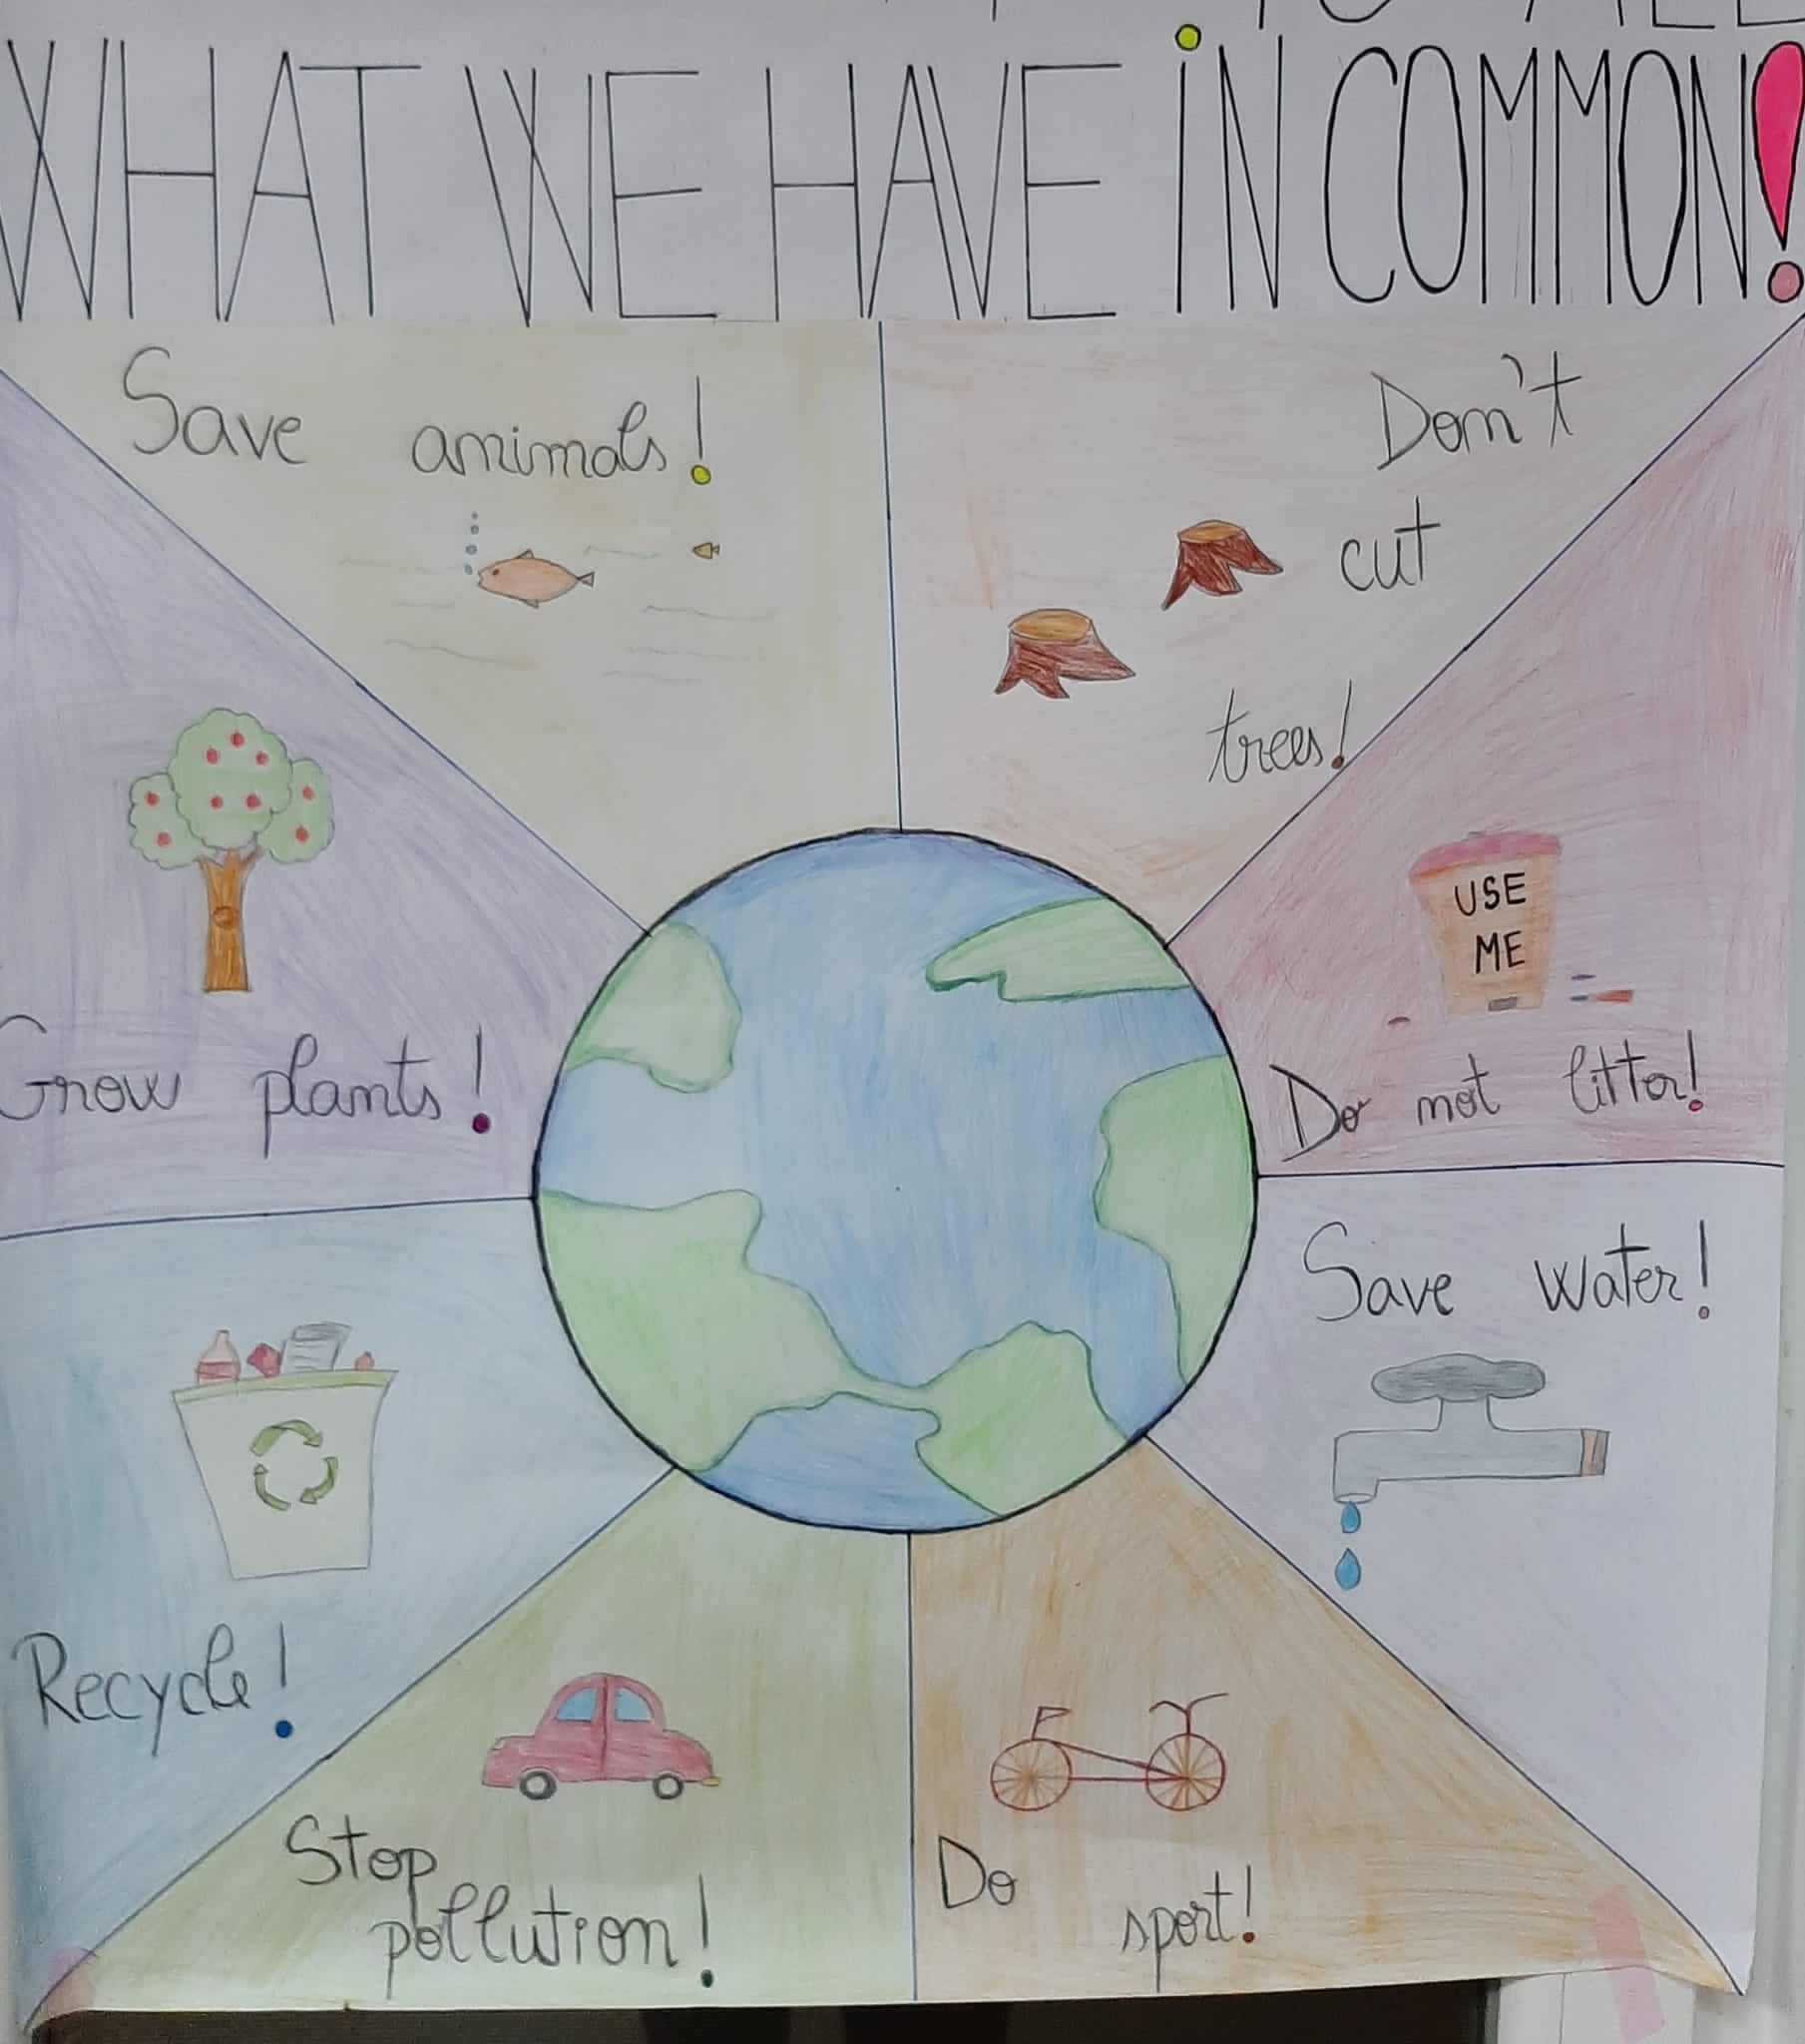 TO ALL
WHAT WE HAVE iN COMMON!
Save animals!
Don't
cut
trees!
Grow plants!
USE
ME
Do not litter!
Save water!
Recycle!
Stop
pollution!
Do
sport!